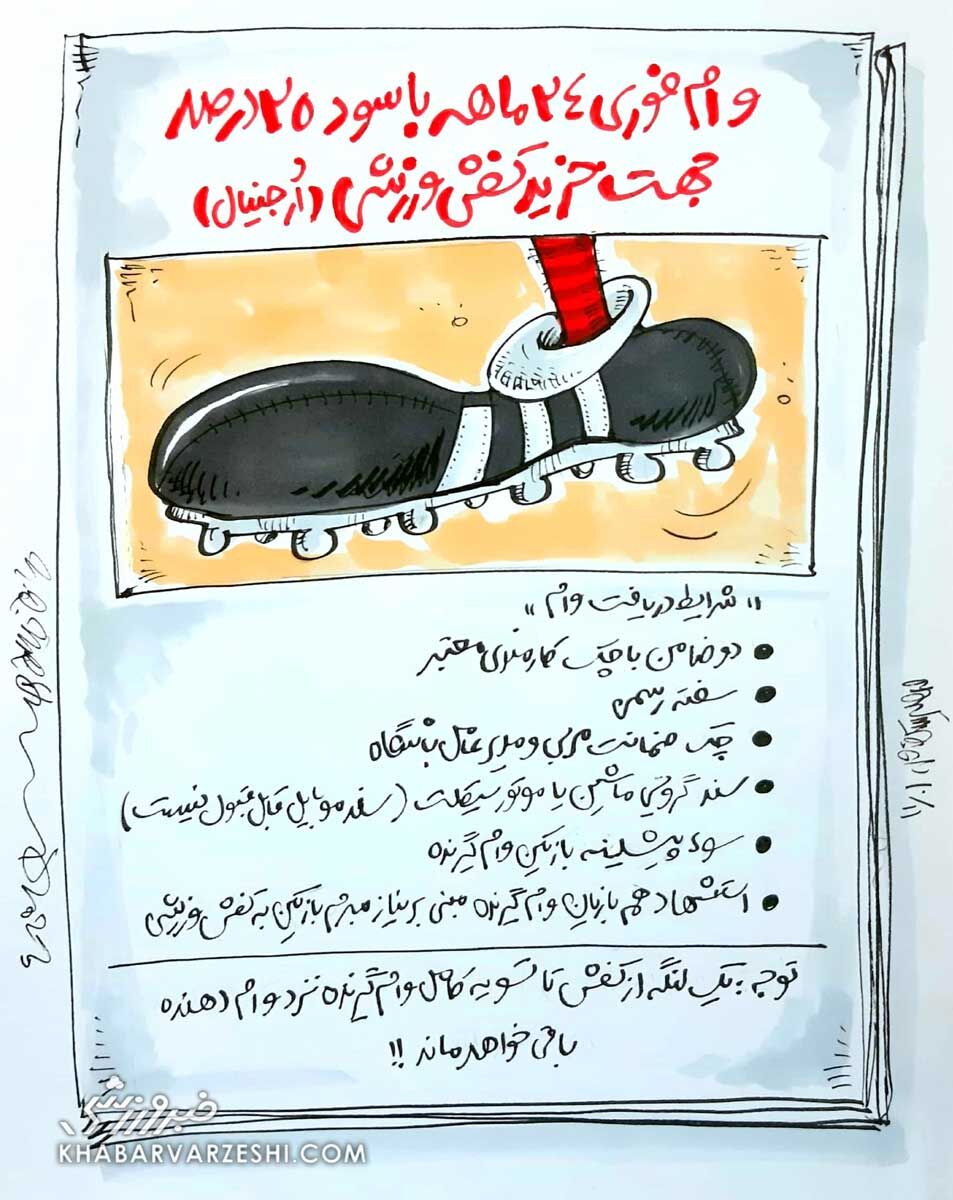 وام فوری ۲۴ ماهه با سود ۲۵ درصد
جهت خرید کفش ورزشی (اُرجینال)
«شرایط دریافت وام»
• دو ضامن با چک کارمندی معتبر
• سفته رسمی
• چک ضمانت مربی و مدیر عامل باشگاه
• سند گروئی ماشین یا موتور سیکلت (سند موبایل قابل قبول نیست)
• سوء پیشینه بازیکن وام گیرنده
• استشهاد هم بازیان وام گیرنده مبنی بر نیاز مبرم بازیکن به کفش ورزشی
توجه: یک لنگه از کفش تا تسویه کامل وام گیرنده نزد وام دهنده
باقی خواهد ماند !!
خبرورزشی
KHABARVARZESHI.COM